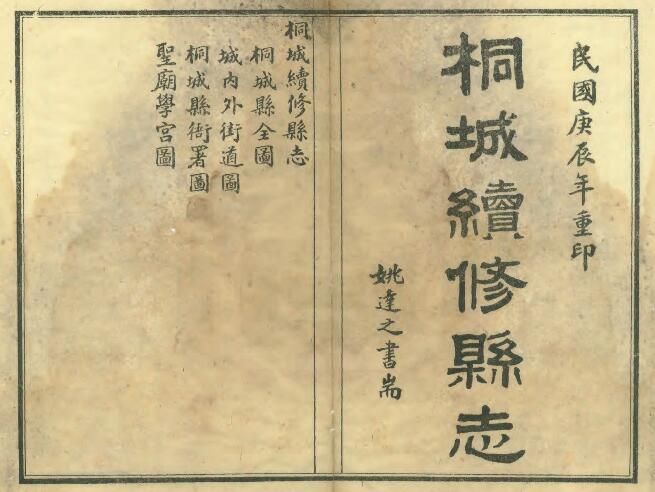 民國庚辰年重印
桐城續修縣志
姚達之書耑
桐城續修縣志
桐城縣全圖
城内外街道圖
桐城縣衙署圖
聖廟學宮圖